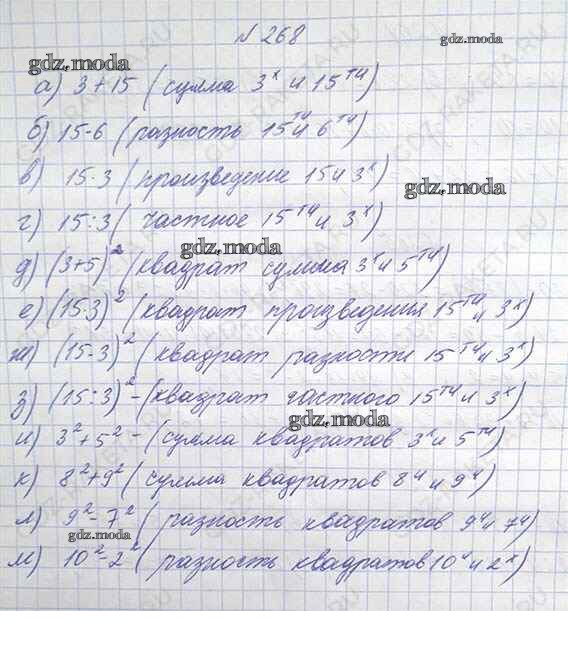 N 268
gdz.moda
gdz.moda
а) 3+15 (сумма 3ˣ и 15ᵀᴻ)
б) 15-6 (разность 15ᵀᴻ и 6ᵀᴻ)
в) 15·3 (произведение 15 и 3ˣ)
gdz.moda
г) 15:3 (частное 15ᵀᴻ и 3ˣ)
gdz.moda
д) (3+5)² (квадрат сумма 3ˣ и 5ᵀᴻ)
е) (15·3)² (квадрат произведения 15ᵀᴻ и 3ˣ)
ж) (15-3)² - (квадрат разности 15ᵀᴻ и 3ˣ)
з) (15:3)² - (квадрат частного 15ᵀᴻ и 3ˣ)
gdz.moda
и) 3²+5² - (сумма квадратов 3ˣ и 5ᵀᴻ)
к) 8²+9² (сумма квадратов 8ᴻ и 9ᴻ)
л) 9²-7² (разность квадратов 9ᴻ и 7ᴻ)
gdz.moda
м) 10²-2² (разность квадратов 10ᴻ и 2ˣ)